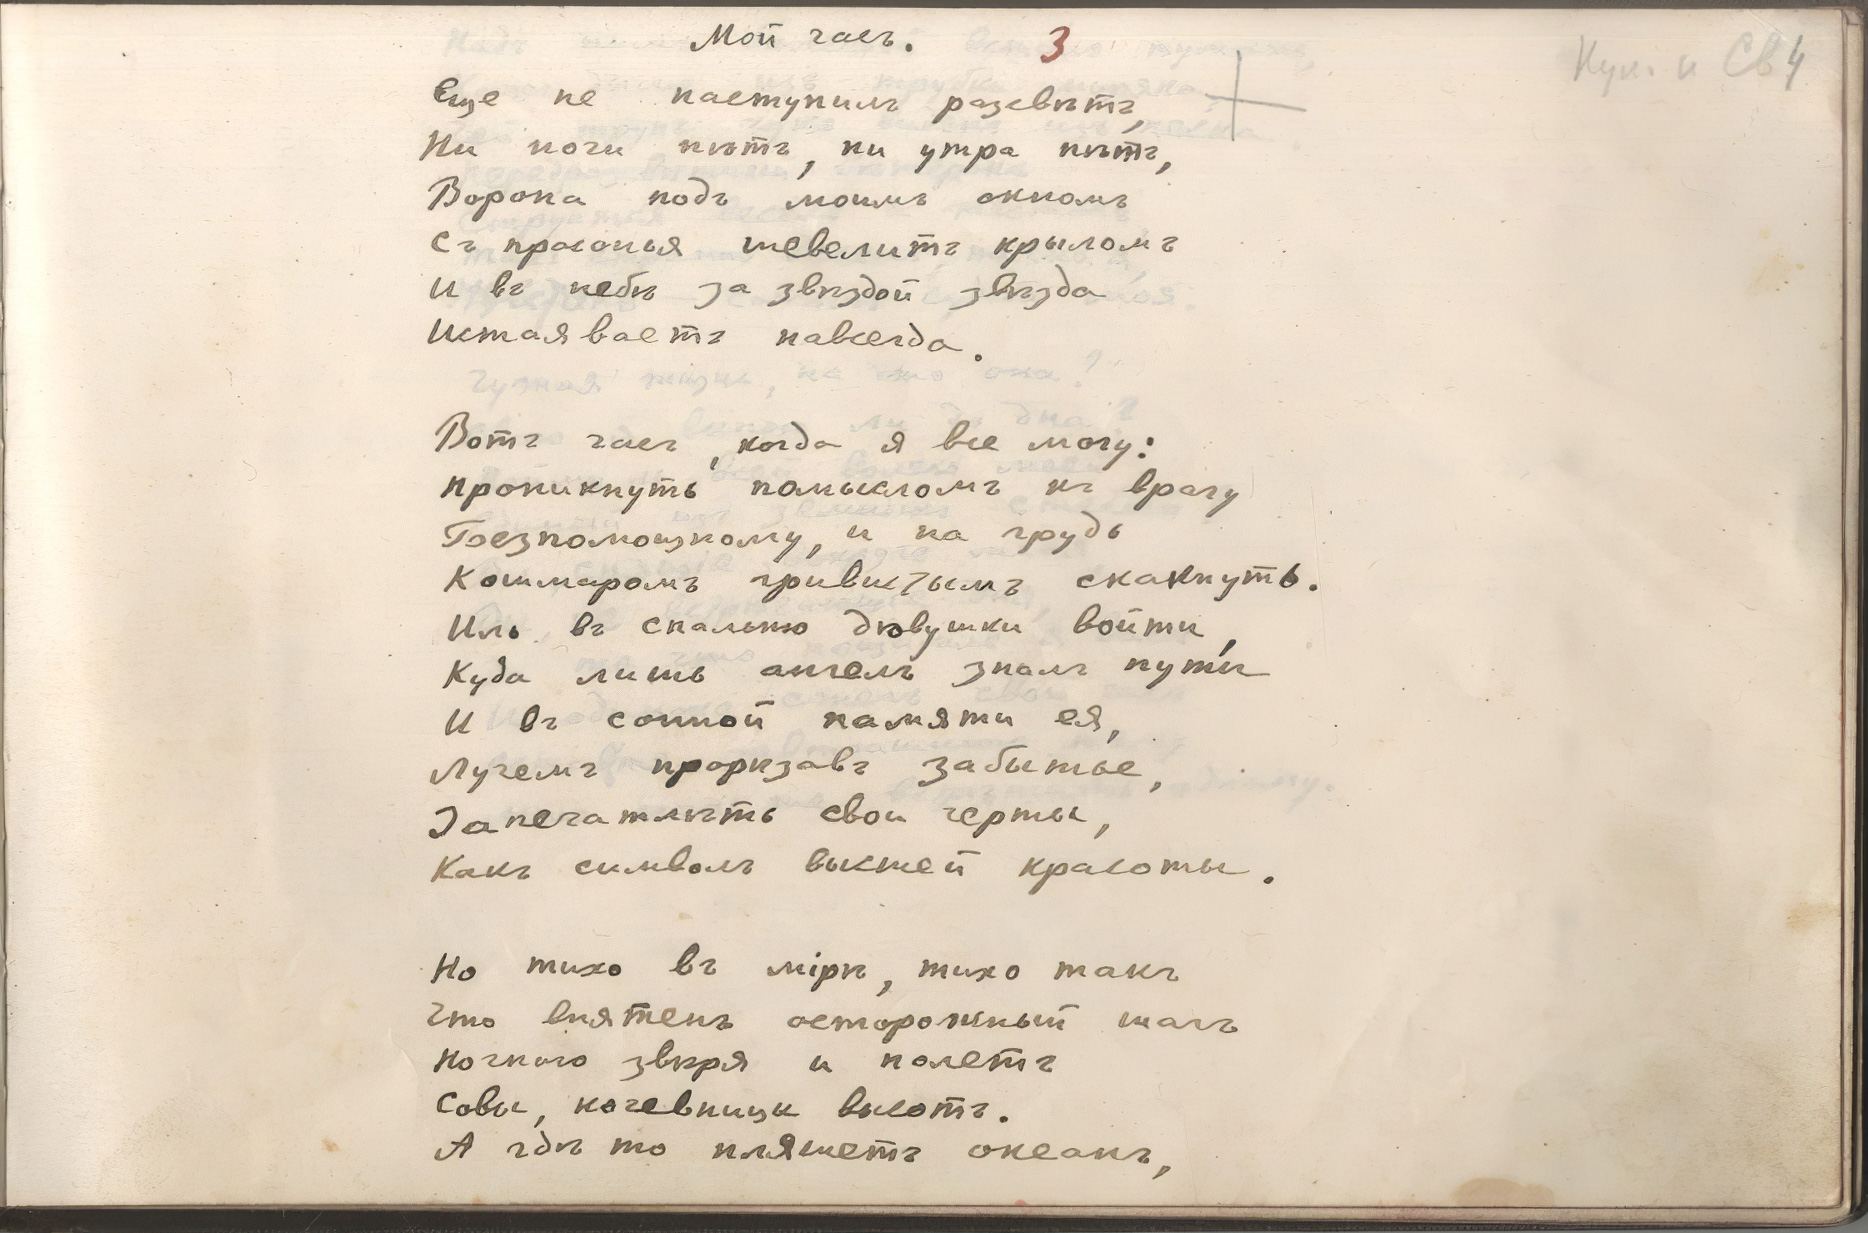 Мой часъ. 3
Кук. и Св 4
Еще не наступилъ разсвѣтъ,
Ни ночи нѣтъ, ни утра нѣтъ,
Ворона подъ моимъ окномъ
Съ просонья шевелитъ крыломъ
И въ небѣ за звѣздой звѣзда
Истаяваетъ навсегда.
Вотъ часъ, когда я все могу:
Проникнуть помысломъ къ врагу
Безпомощному, и на грудь
Кошмаромъ гривистымъ скакнуть.
Иль въ спальню дѣвушки войти,
Куда лишь ангелъ зналъ пути
И въ сонной памяти ея,
Лучемъ прорѣзавъ забытье,
Запечатлѣть свои черты,
Какъ символъ высшей красоты.
Но тихо въ мірѣ, тихо такъ
Что внятенъ осторожный шагъ
Ночного звѣря и полетъ
Совы, кочевницы высотъ.
А гдѣ то пляшетъ океанъ,